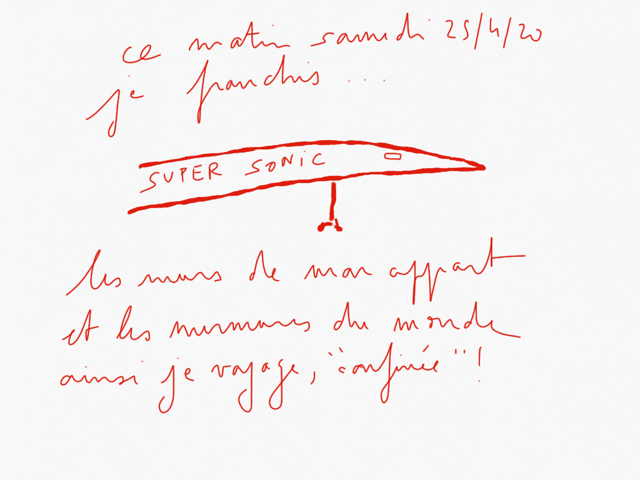 ce matin samedi 25/4/20
je franchis ...
SUPER SONIC
les murs de mon appart
et les murmures du monde
ainsi je voyage, "confinée"!